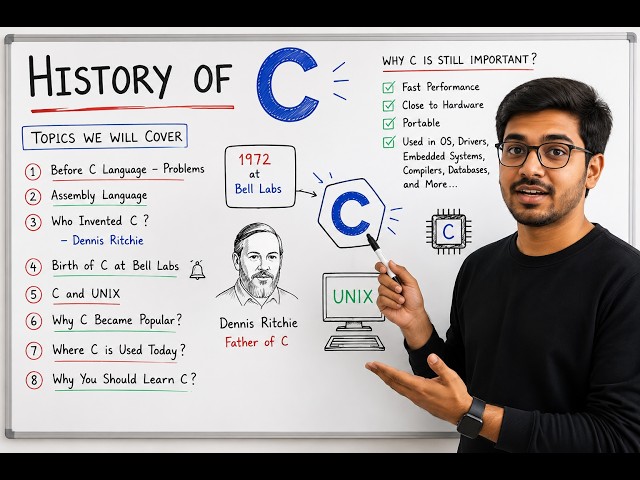 HISTORY OF C
TOPICS WE WILL COVER
1 Before C Language – Problems
2 Assembly Language
3 Who Invented C ?
– Dennis Ritchie
4 Birth of C at Bell Labs
5 C and UNIX
6 Why C Became Popular?
7 Where C is Used Today?
8 Why You Should Learn C?
1972
at
Bell Labs
C
Dennis Ritchie
Father of C
UNIX
WHY C IS STILL IMPORTANT?
Fast Performance
Close to Hardware
Portable
Used in OS, Drivers,
Embedded Systems,
Compilers, Databases,
and More...
C